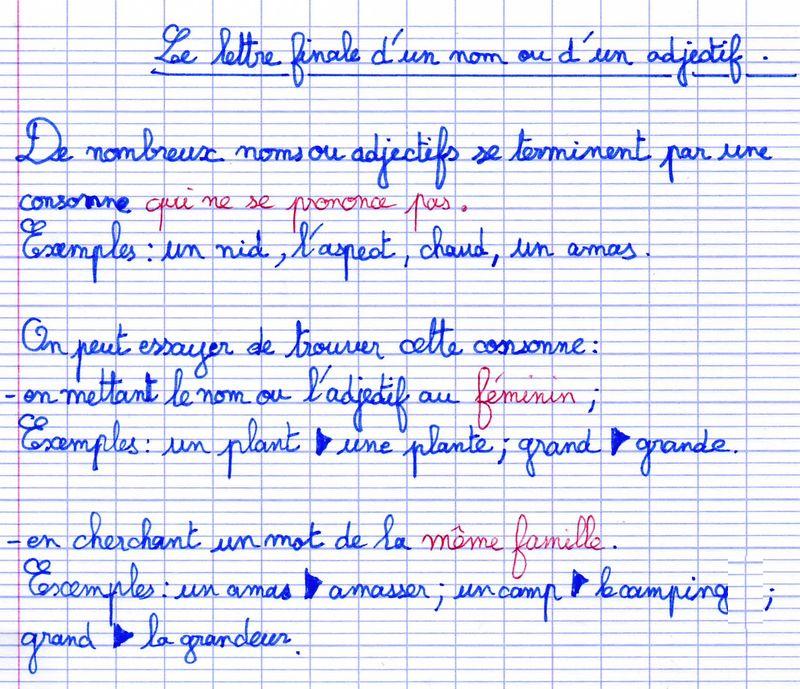 Le lettre finale d'un nom ou d'un adjectif.
De nombreux noms ou adjectifs se terminent par une
consonne qui ne se prononce pas.
Exemples : un nid, l'aspect, chaud, un amas.
On peut essayer de trouver cette consonne :
- en mettant le nom ou l'adjectif au féminin ;
Exemples : un plant ▶ une plante ; grand ▶ grande.
- en cherchant un mot de la même famille.
Exemples : un amas ▶ amasser ; un camp ▶ le camping ;
grand ▶ la grandeur.